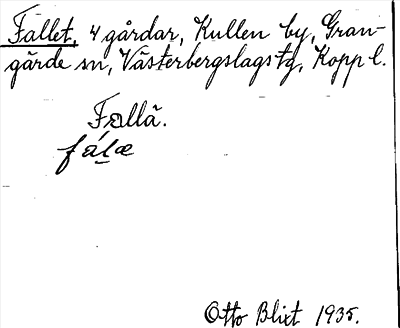 Fallet, 4 gårdar, Kullen by, Gran-
gärde sn, Västerbergslags tg, Kopp l.
Fallä.
fáḻæ
Otto Blixt 1935.